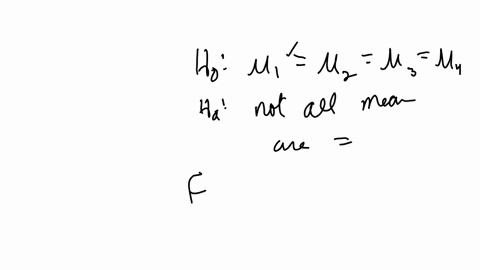 H₀: μ₁ = μ₂ = μ₃ = μ₄
Hₐ: not all mean
are =
F